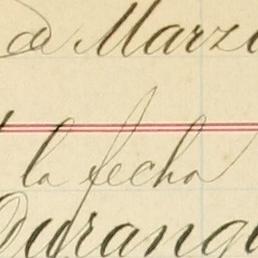 de Marzo
la fecha
Durango